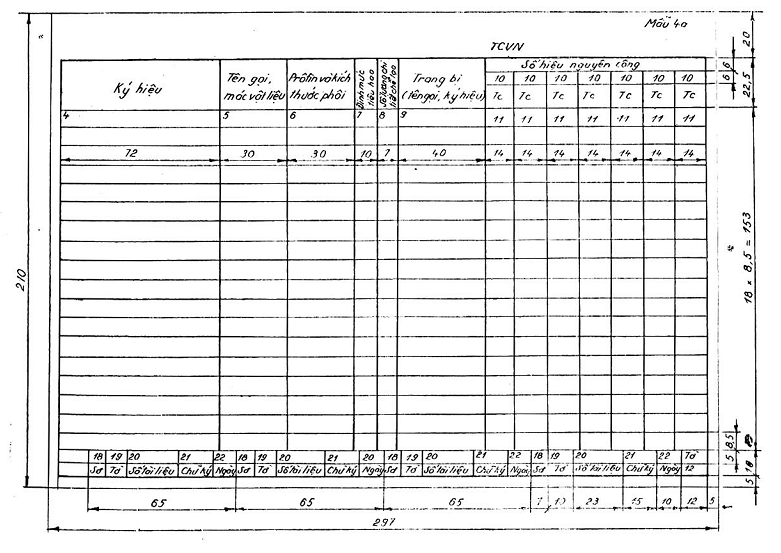 Mẫu 4a
TCVN
Ký hiệu
Tên gọi, mác vật liệu
Prôfin và kích thước phôi
Định mức tiêu hao
Số lượng chi tiết chế tạo
Trang bị (Tên gọi, ký hiệu)
Số hiệu nguyên công
10 10 10 10 10 10 10
Tc Tc Tc Tc Tc Tc Tc
4 5 6 7 8 9 11 11 11 11 11 11 11
72 30 30 10 7 40 14 14 14 14 14 14 14
20
6 6
22,5
18 x 8,5 = 153
210
8,5
5 18
5
18 19 20 21 22 18 19 20 21 20 18 19 20 21 22 18 19 20 21 22 Tờ
Sđ Tờ Số tài liệu Chữ ký Ngày Sđ Tờ Số tài liệu Chữ ký Ngày Sđ Tờ Số tài liệu Chữ ký Ngày Sđ Tờ Số tài liệu Chữ ký Ngày 12
65 65 65 7 10 23 15 10 12 5
297